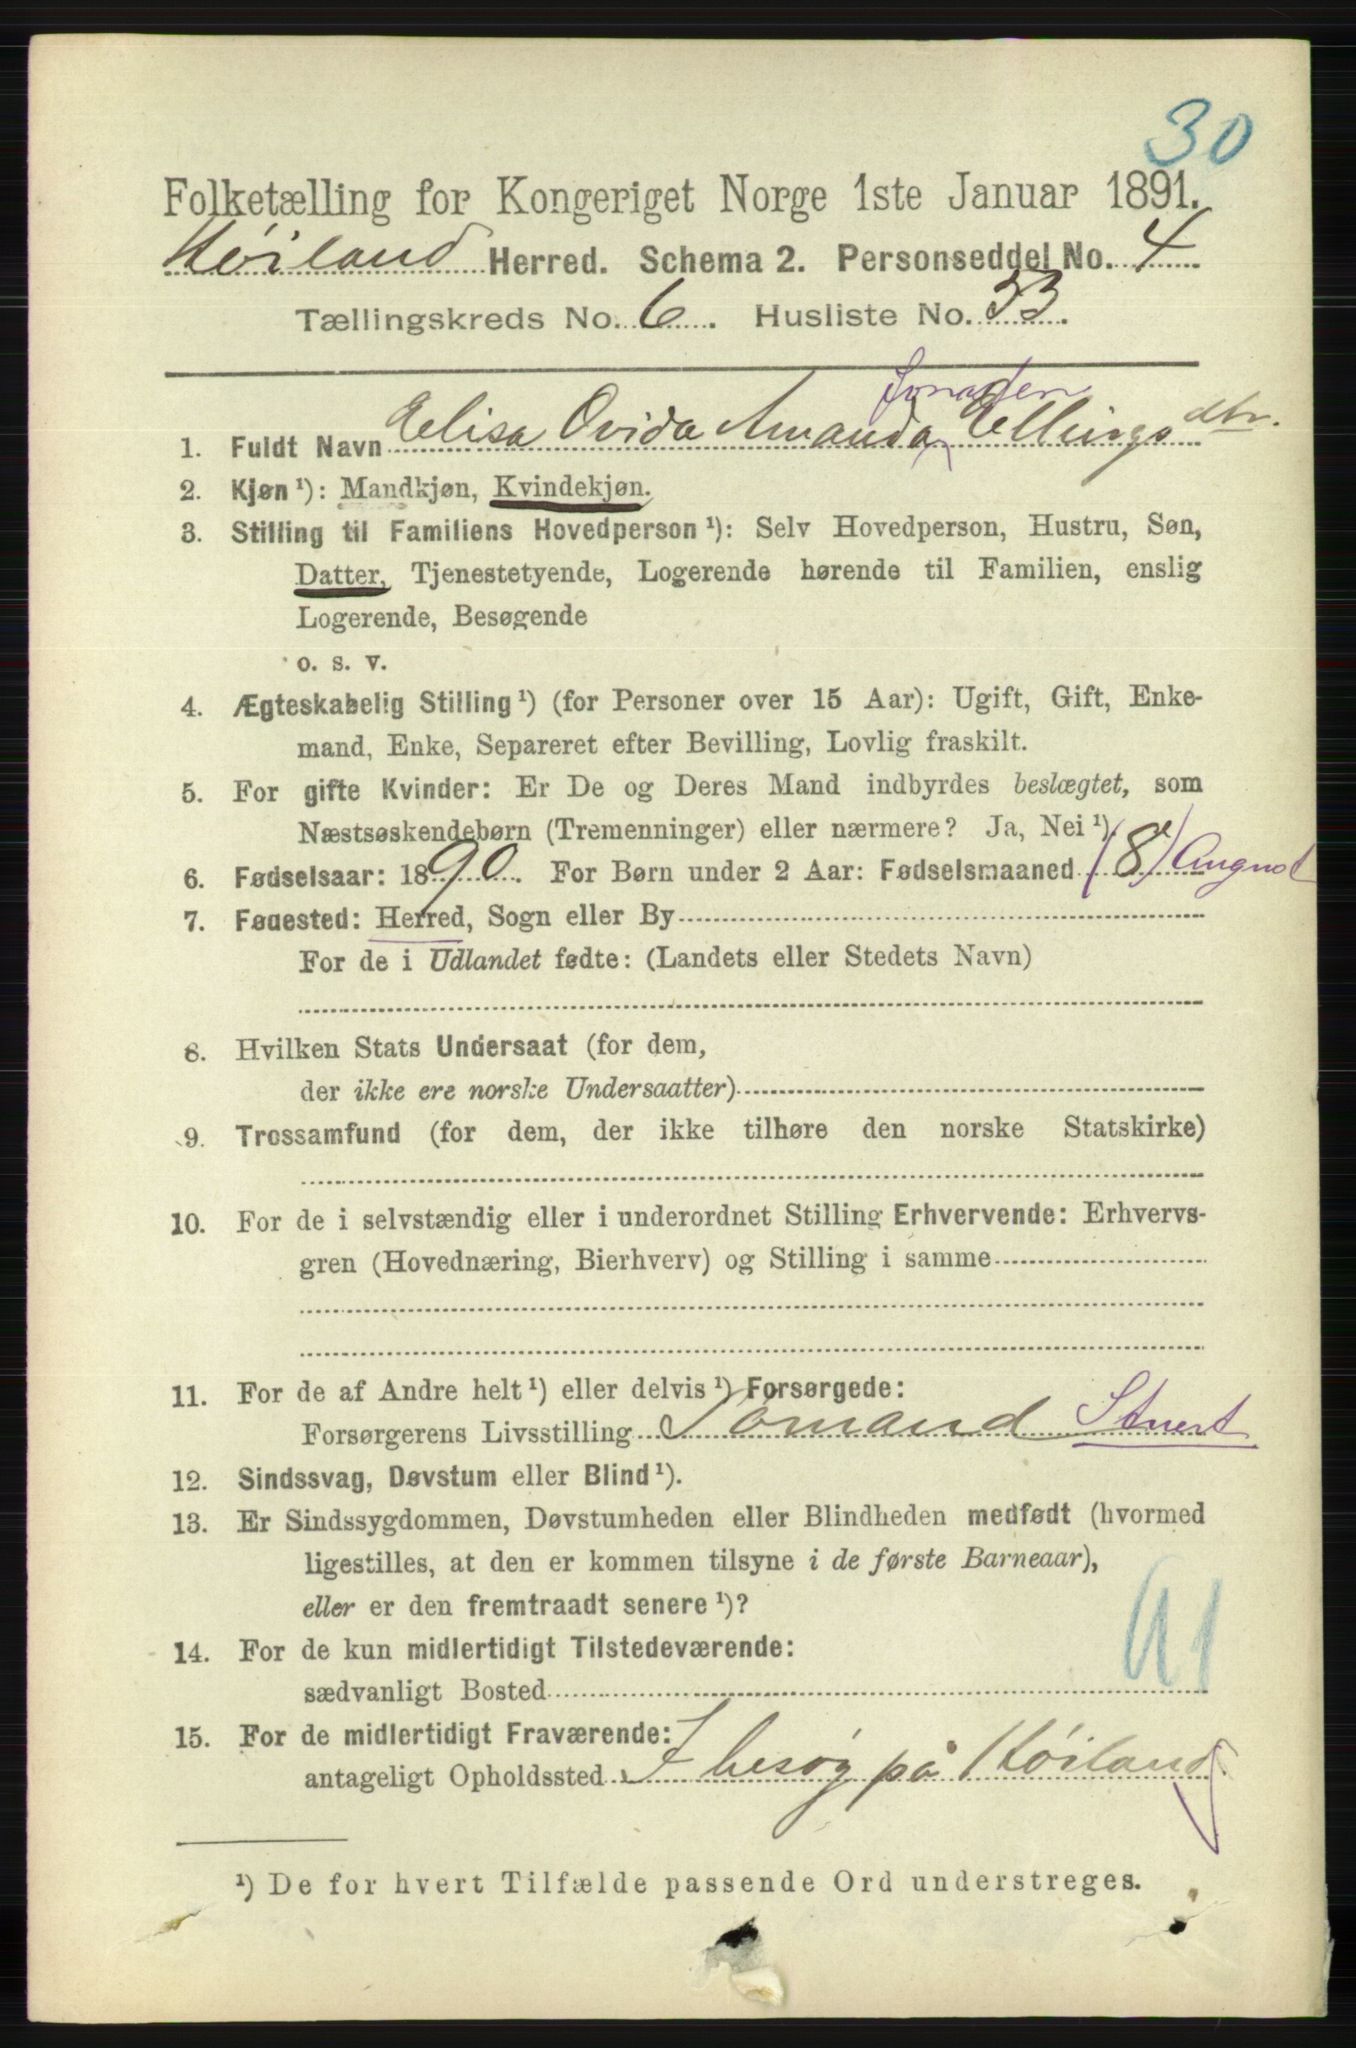 30
Folketælling for Kongeriget Norge 1ste Januar 1891.
Høiland Herred. Schema 2. Personseddel No. 4
Tællingskreds No. 6. Husliste No. 33.
1. Fuldt Navn Elisa Ovida Amanda Ellingsdtr.
2. Kjøn ¹): Mandkjøn, Kvindekjøn.
3. Stilling til Familiens Hovedperson ¹): Selv Hovedperson, Hustru, Søn,
Datter, Tjenestetyende, Logerende hørende til Familien, enslig
Logerende, Besøgende
o. s. v.
4. Ægteskabelig Stilling ¹) (for Personer over 15 Aar): Ugift, Gift, Enke-
mand, Enke, Separeret efter Bevilling, Lovlig fraskilt.
5. For gifte Kvinder: Er De og Deres Mand indbyrdes beslægtet, som
Næstsøskendebørn (Tremenninger) eller nærmere? Ja, Nei ¹).
6. Fødselsaar: 1890. For Børn under 2 Aar: Fødselsmaaned (8) August
7. Fødested: Herred, Sogn eller By
For de i Udlandet fødte: (Landets eller Stedets Navn)
8. Hvilken Stats Undersaat (for dem,
der ikke ere norske Undersaatter)
9. Trossamfund (for dem, der ikke tilhøre den norske Statskirke)
10. For de i selvstændig eller i underordnet Stilling Erhvervende: Erhvervs-
gren (Hovednæring, Bierhverv) og Stilling i samme
11. For de af Andre helt ¹) eller delvis ¹) Forsørgede:
Forsørgerens Livsstilling Sømand Stuert
12. Sindssvag, Døvstum eller Blind ¹).
13. Er Sindssygdommen, Døvstumheden eller Blindheden medfødt (hvormed
ligestilles, at den er kommen tilsyne i de første Barneaar),
eller er den fremtraadt senere ¹)?
14. For de kun midlertidigt Tilstedeværende:
sædvanligt Bosted
15. For de midlertidigt Fraværende:
antageligt Opholdssted I besøg på Høiland
¹) De for hvert Tilfælde passende Ord understreges.